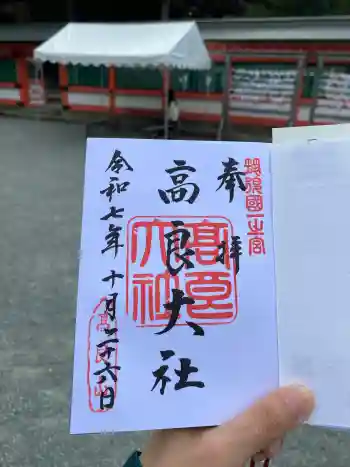 筑後國一之宮
奉拝
高良大社
高良大社
令和七年十月二十六日